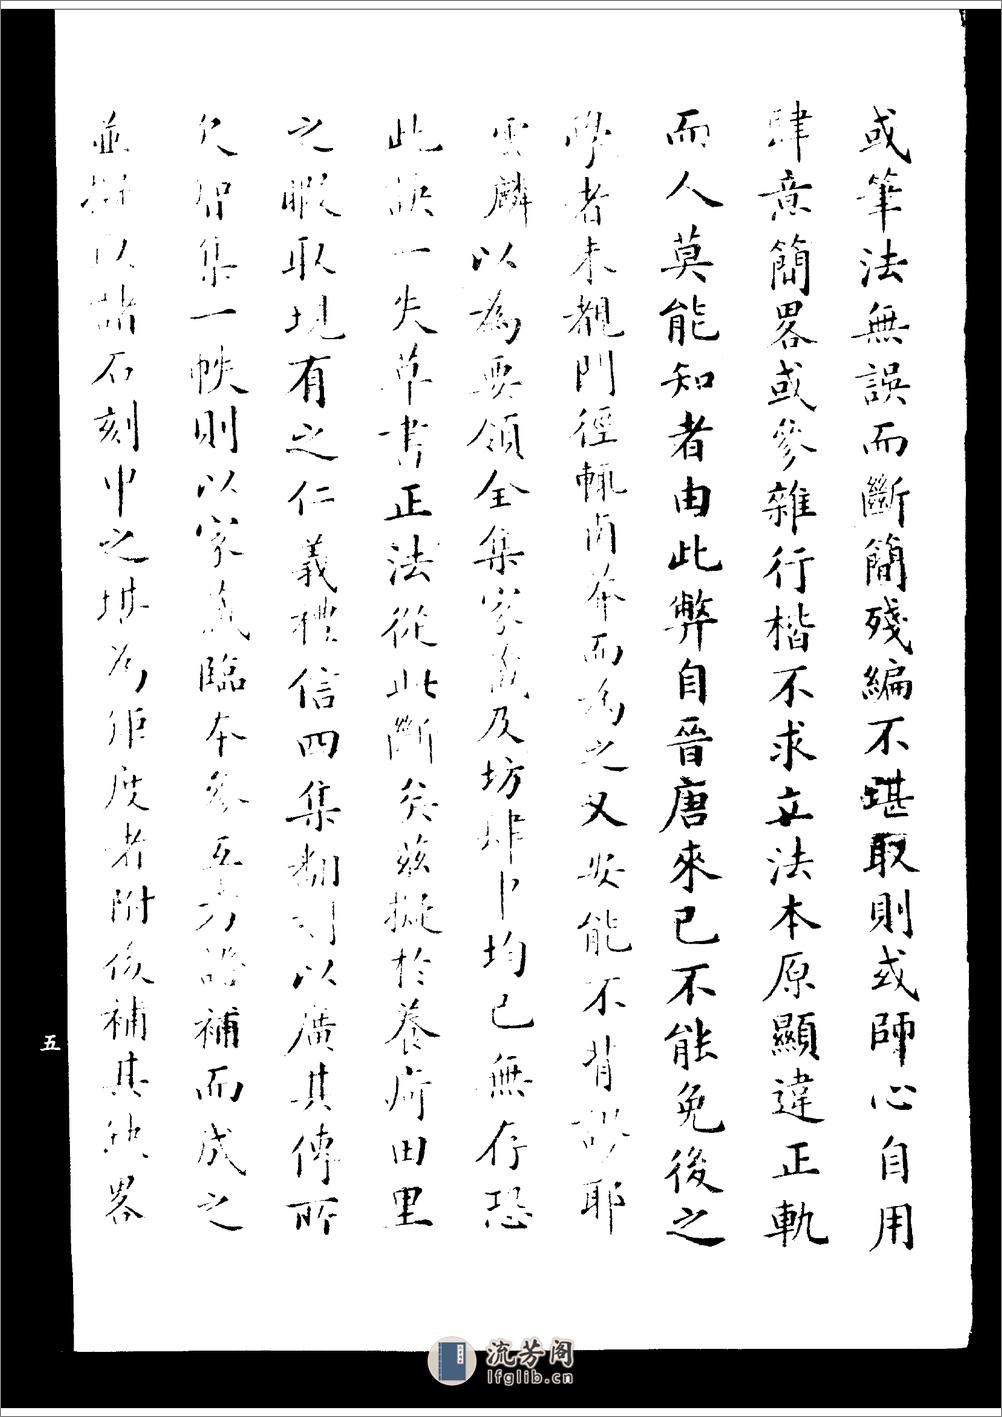 或筆法無誤而斷簡殘編不堪取則或師心自用
肆意簡畧或參雜行楷不求立法本原顯違正軌
而人莫能知者由此弊自晉唐來已不能免後之
學者未覩門徑輒而為之又安能不背謬耶
雲麟以為要領全集家藏及坊肆中均已無存恐
此訣一失草書正法從此斷矣茲擬於養疴田里
之暇取現有之仁義禮信四集翻刻以廣其傳所
欠智集一帙則以家藏臨本參互考證補而成之
並擬以諸石刻中之堪為矩度者附後補其缺畧
五
流芳阁
lfglib.cn